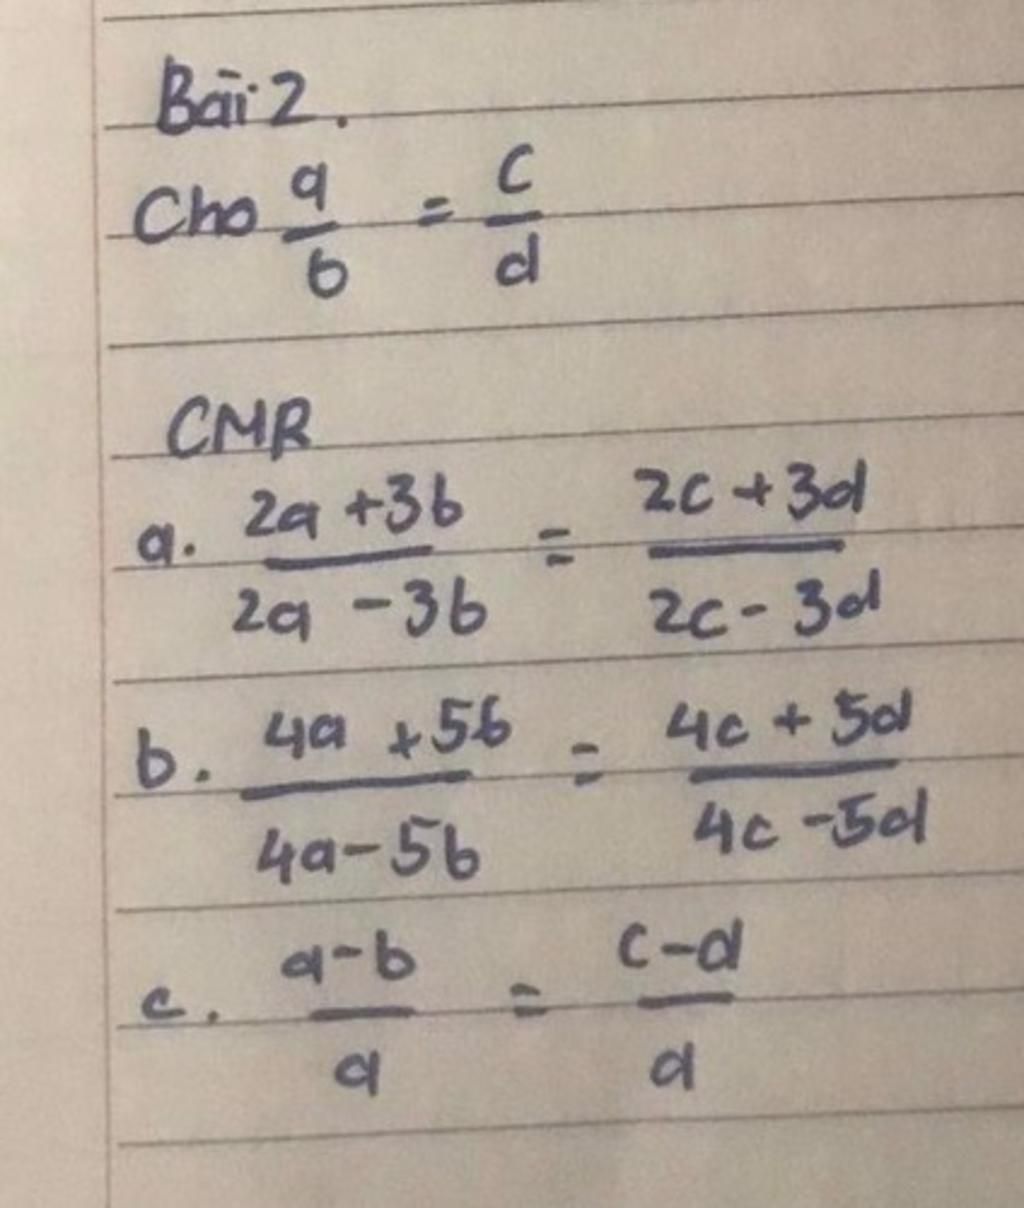 Bài 2.
Cho a/b = c/d
CMR
a. (2a + 3b)/(2a - 3b) = (2c + 3d)/(2c - 3d)
b. (4a + 5b)/(4a - 5b) = (4c + 5d)/(4c - 5d)
c. (a - b)/a = (c - d)/d